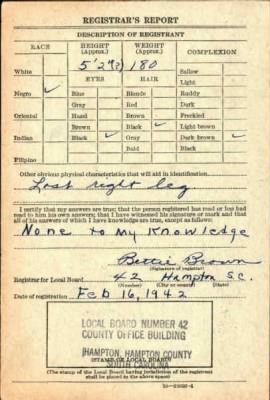 REGISTRAR'S REPORT
DESCRIPTION OF REGISTRANT
RACE HEIGHT (Approx.) WEIGHT (Approx.) COMPLEXION
5' 2"(?) 180
White Sallow
EYES HAIR Light
Negro ✓ Blue Blonde Ruddy
Gray Red Dark
Oriental Hazel Brown Freckled
Brown Black ✓ Light brown
Indian Black ✓ Gray Dark brown ✓
Bald Black
Filipino
Other obvious physical characteristics that will aid in identification
Lost right leg
I certify that my answers are true; that the person registered has read or has had
read to him his own answers; that I have witnessed his signature or mark and that
all of his answers of which I have knowledge are true, except as follows:
None to my Knowledge
Bettie Brown
(Signature of registrar)
Registrar for Local Board 42 Hampton S.C.
(Number) (City or county) (State)
Date of registration Feb 16, 1942
LOCAL BOARD NUMBER 42
COUNTY OFFICE BUILDING
HAMPTON, HAMPTON COUNTY
SOUTH CAROLINA
(STAMP OF LOCAL BOARD)
(The stamp of the Local Board having jurisdiction of the registrant
shall be placed in the above space)